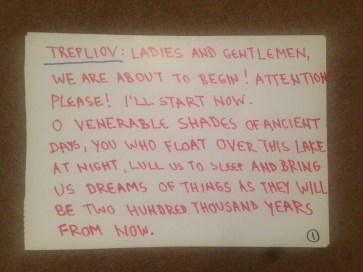 TREPLIOV: LADIES AND GENTLEMEN,
WE ARE ABOUT TO BEGIN! ATTENTION
PLEASE! I'LL START NOW.
O VENERABLE SHADES OF ANCIENT
DAYS, YOU WHO FLOAT OVER THIS LAKE
AT NIGHT, LULL US TO SLEEP AND BRING
US DREAMS OF THINGS AS THEY WILL
BE TWO HUNDRED THOUSAND YEARS
FROM NOW.
1